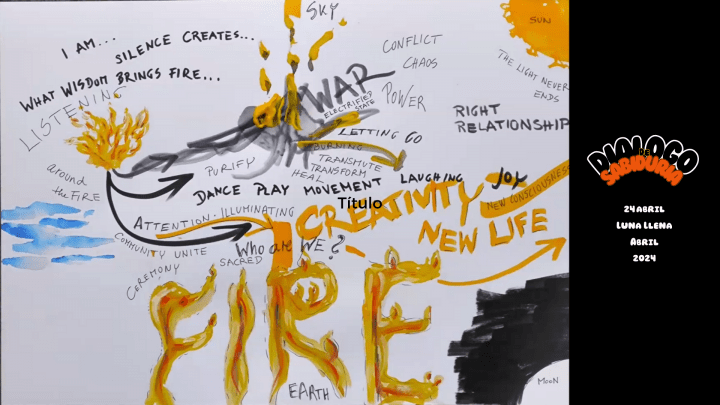 SKY
SUN
I AM...
SILENCE CREATES...
WHAT WISDOM BRINGS FIRE...
LISTENING
CONFLICT
CHAOS
THE LIGHT NEVER
ENDS
WAR
ELECTRIFIED
STATE
POWER
RIGHT
RELATIONSHIP
LETTING GO
BURNING
TRANSMUTE
TRANSFORM
HEAL
PURIFY
around
the FIRE
DANCE PLAY MOVEMENT LAUGHING JOY
NEW CONSCIOUSNESS
Título
CREATIVITY
NEW LIFE
ATTENTION - ILLUMINATING
Who are WE?
COMMUNITY UNITE
SACRED
CEREMONY
FIRE
EARTH
MOON
DIALOGO
DE
SABIDURIA
24 ABRIL
LUNA LLENA
ABRIL
2024